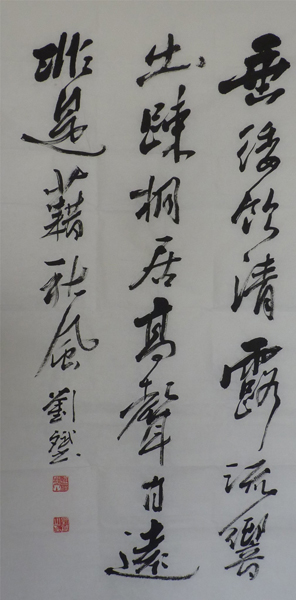 垂緌饮清露流響
出疎桐居高聲自遠
非是藉秋風 劉斌